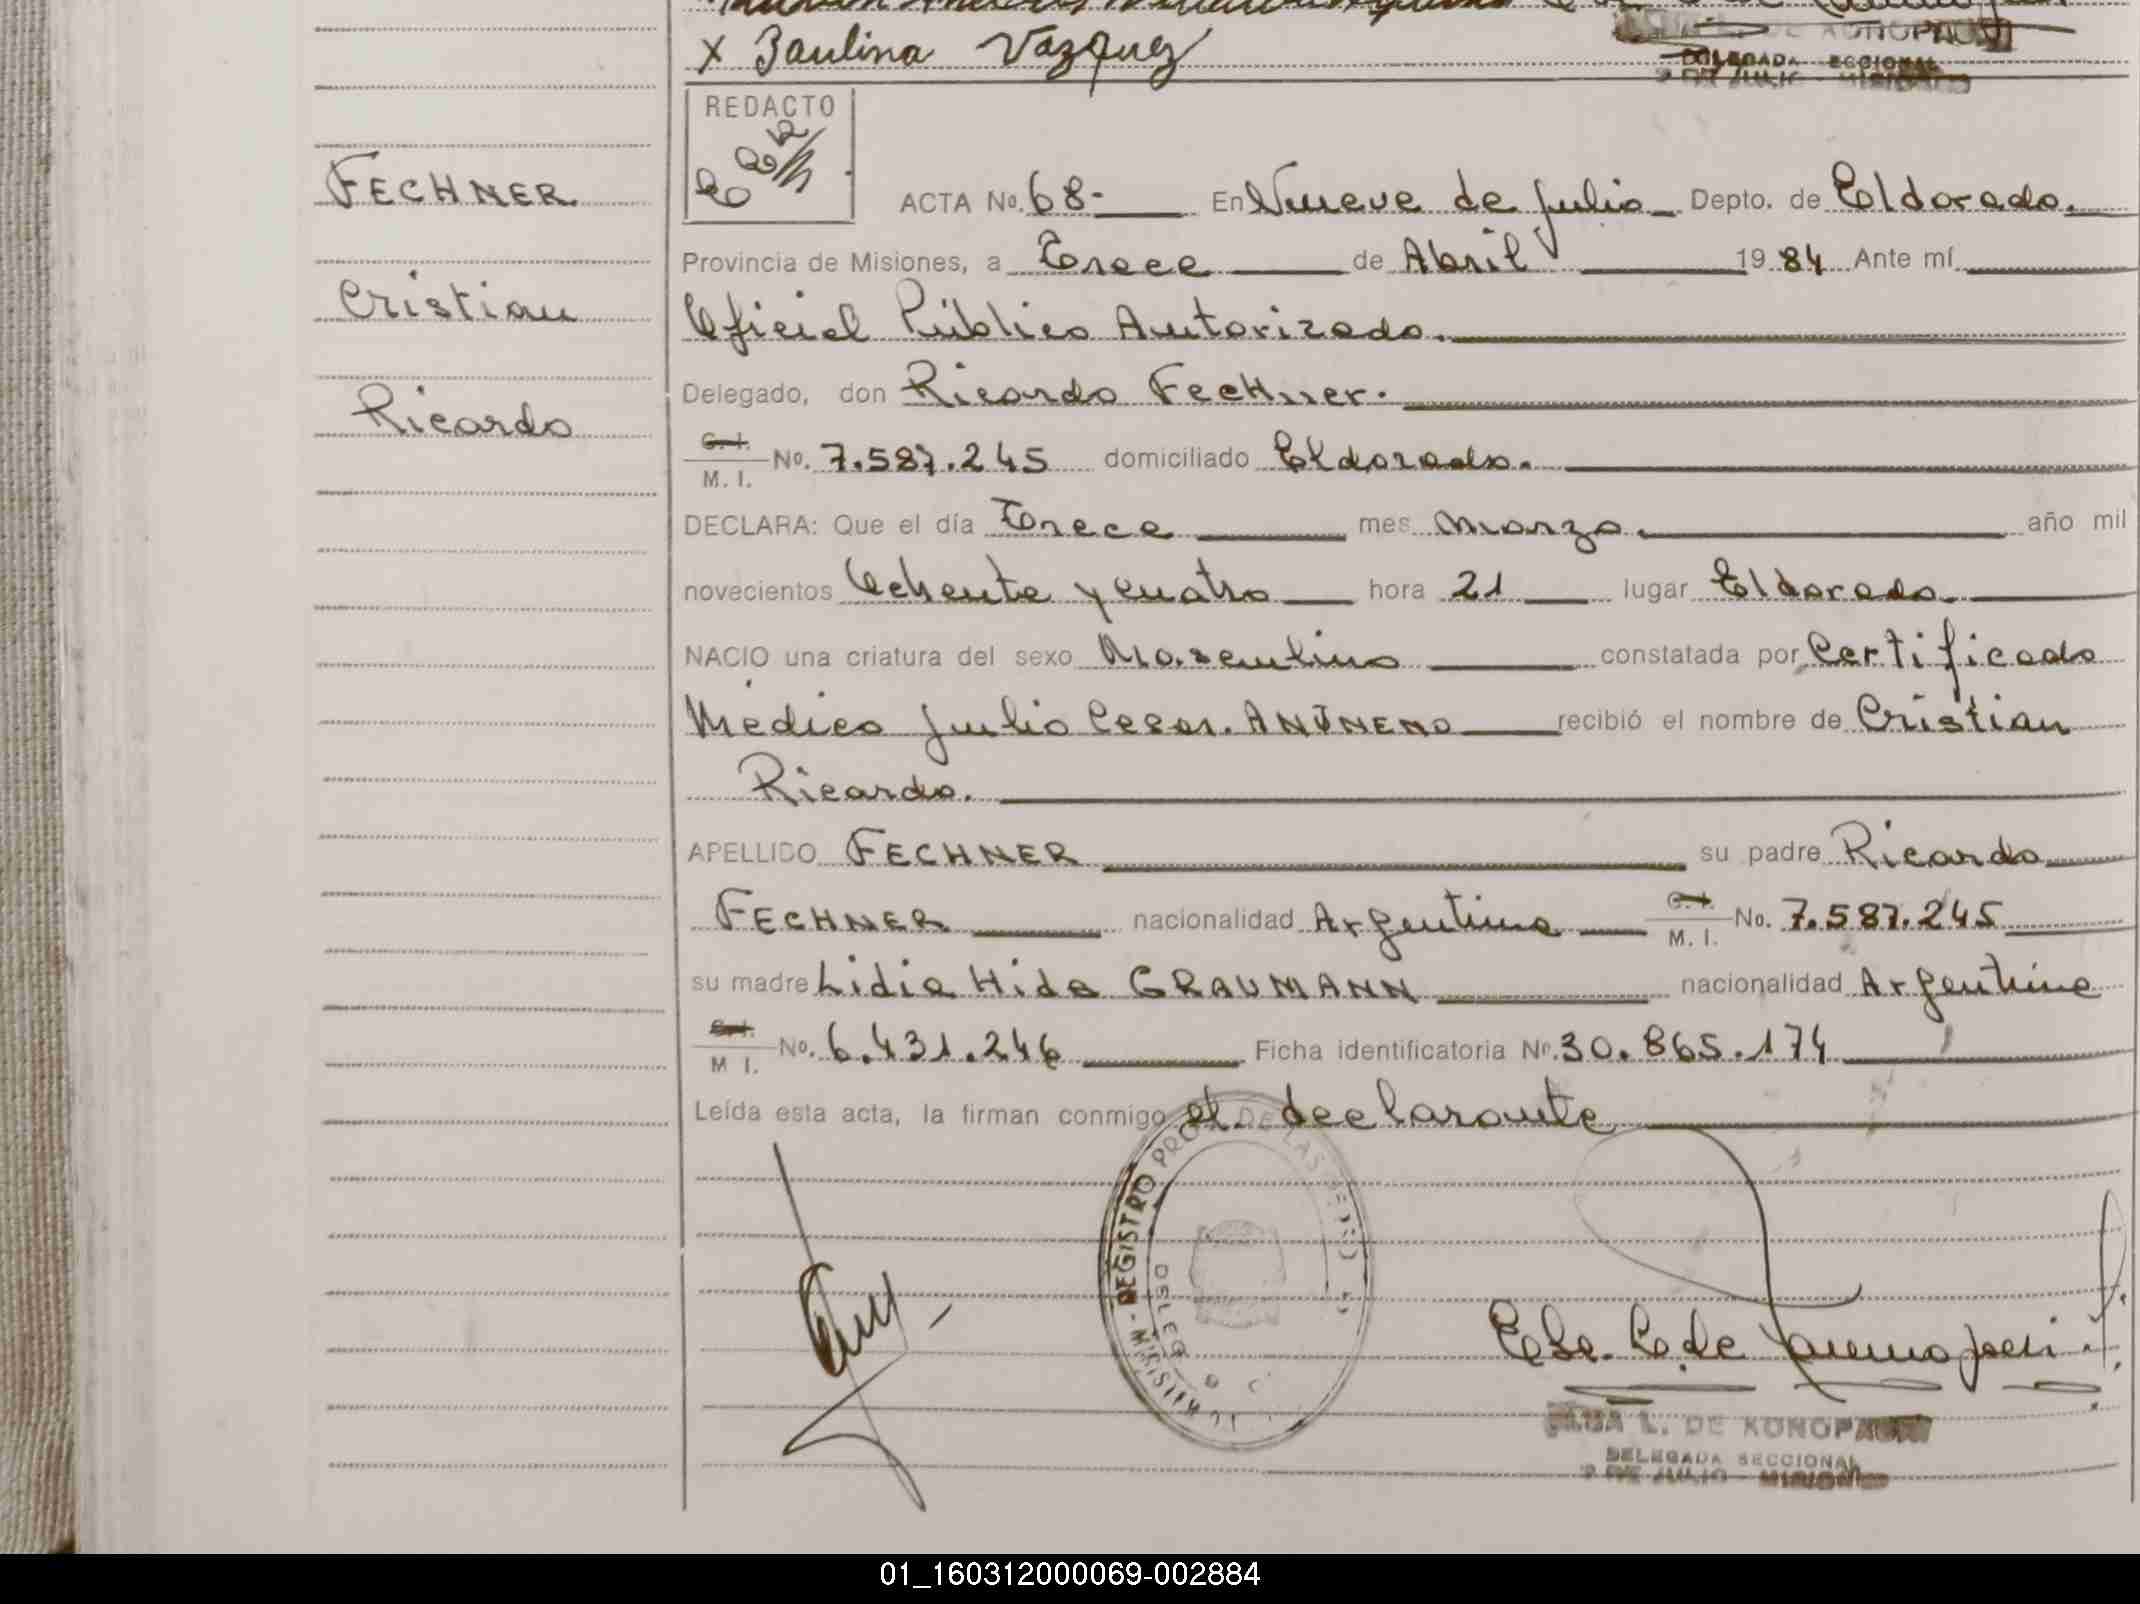 x Paulina Vazquez
DELEGADA SECCIONAL
9 DE JULIO - MISIONES
REDACTO
FECHNER
Cristian
Ricardo
ACTA No. 68- En Nueve de Julio Depto. de Eldorado.
Provincia de Misiones, a Trece de Abril 1984 Ante mí
Oficial Público Autorizado.
Delegado, don Ricardo FecHner.
C. I. / M. I. No. 7.587.245 domiciliado Eldorado.
DECLARA: Que el día Trece mes Marzo. año mil
novecientos Ochenta y cuatro hora 21 lugar Eldorado.
NACIO una criatura del sexo Masculino constatada por Certificado
Médico Julio Cesar. recibió el nombre de Cristian
Ricardo.
APELLIDO FECHNER su padre Ricardo
FECHNER nacionalidad Argentina C. I. / M. I. No. 7.587.245
su madre Lidia Hida GRAUMANN nacionalidad Argentina
C. I. / M I. No. 6.431.246 Ficha identificatoria Nº. 30.865.174
Leída esta acta, la firman conmigo el declarante
REGISTRO PROV. DE LAS PERS
MISIONES
L. DE KONOPA
DELEGADA SECCIONAL
9 DE JULIO - MISIONES
01_160312000069-002884